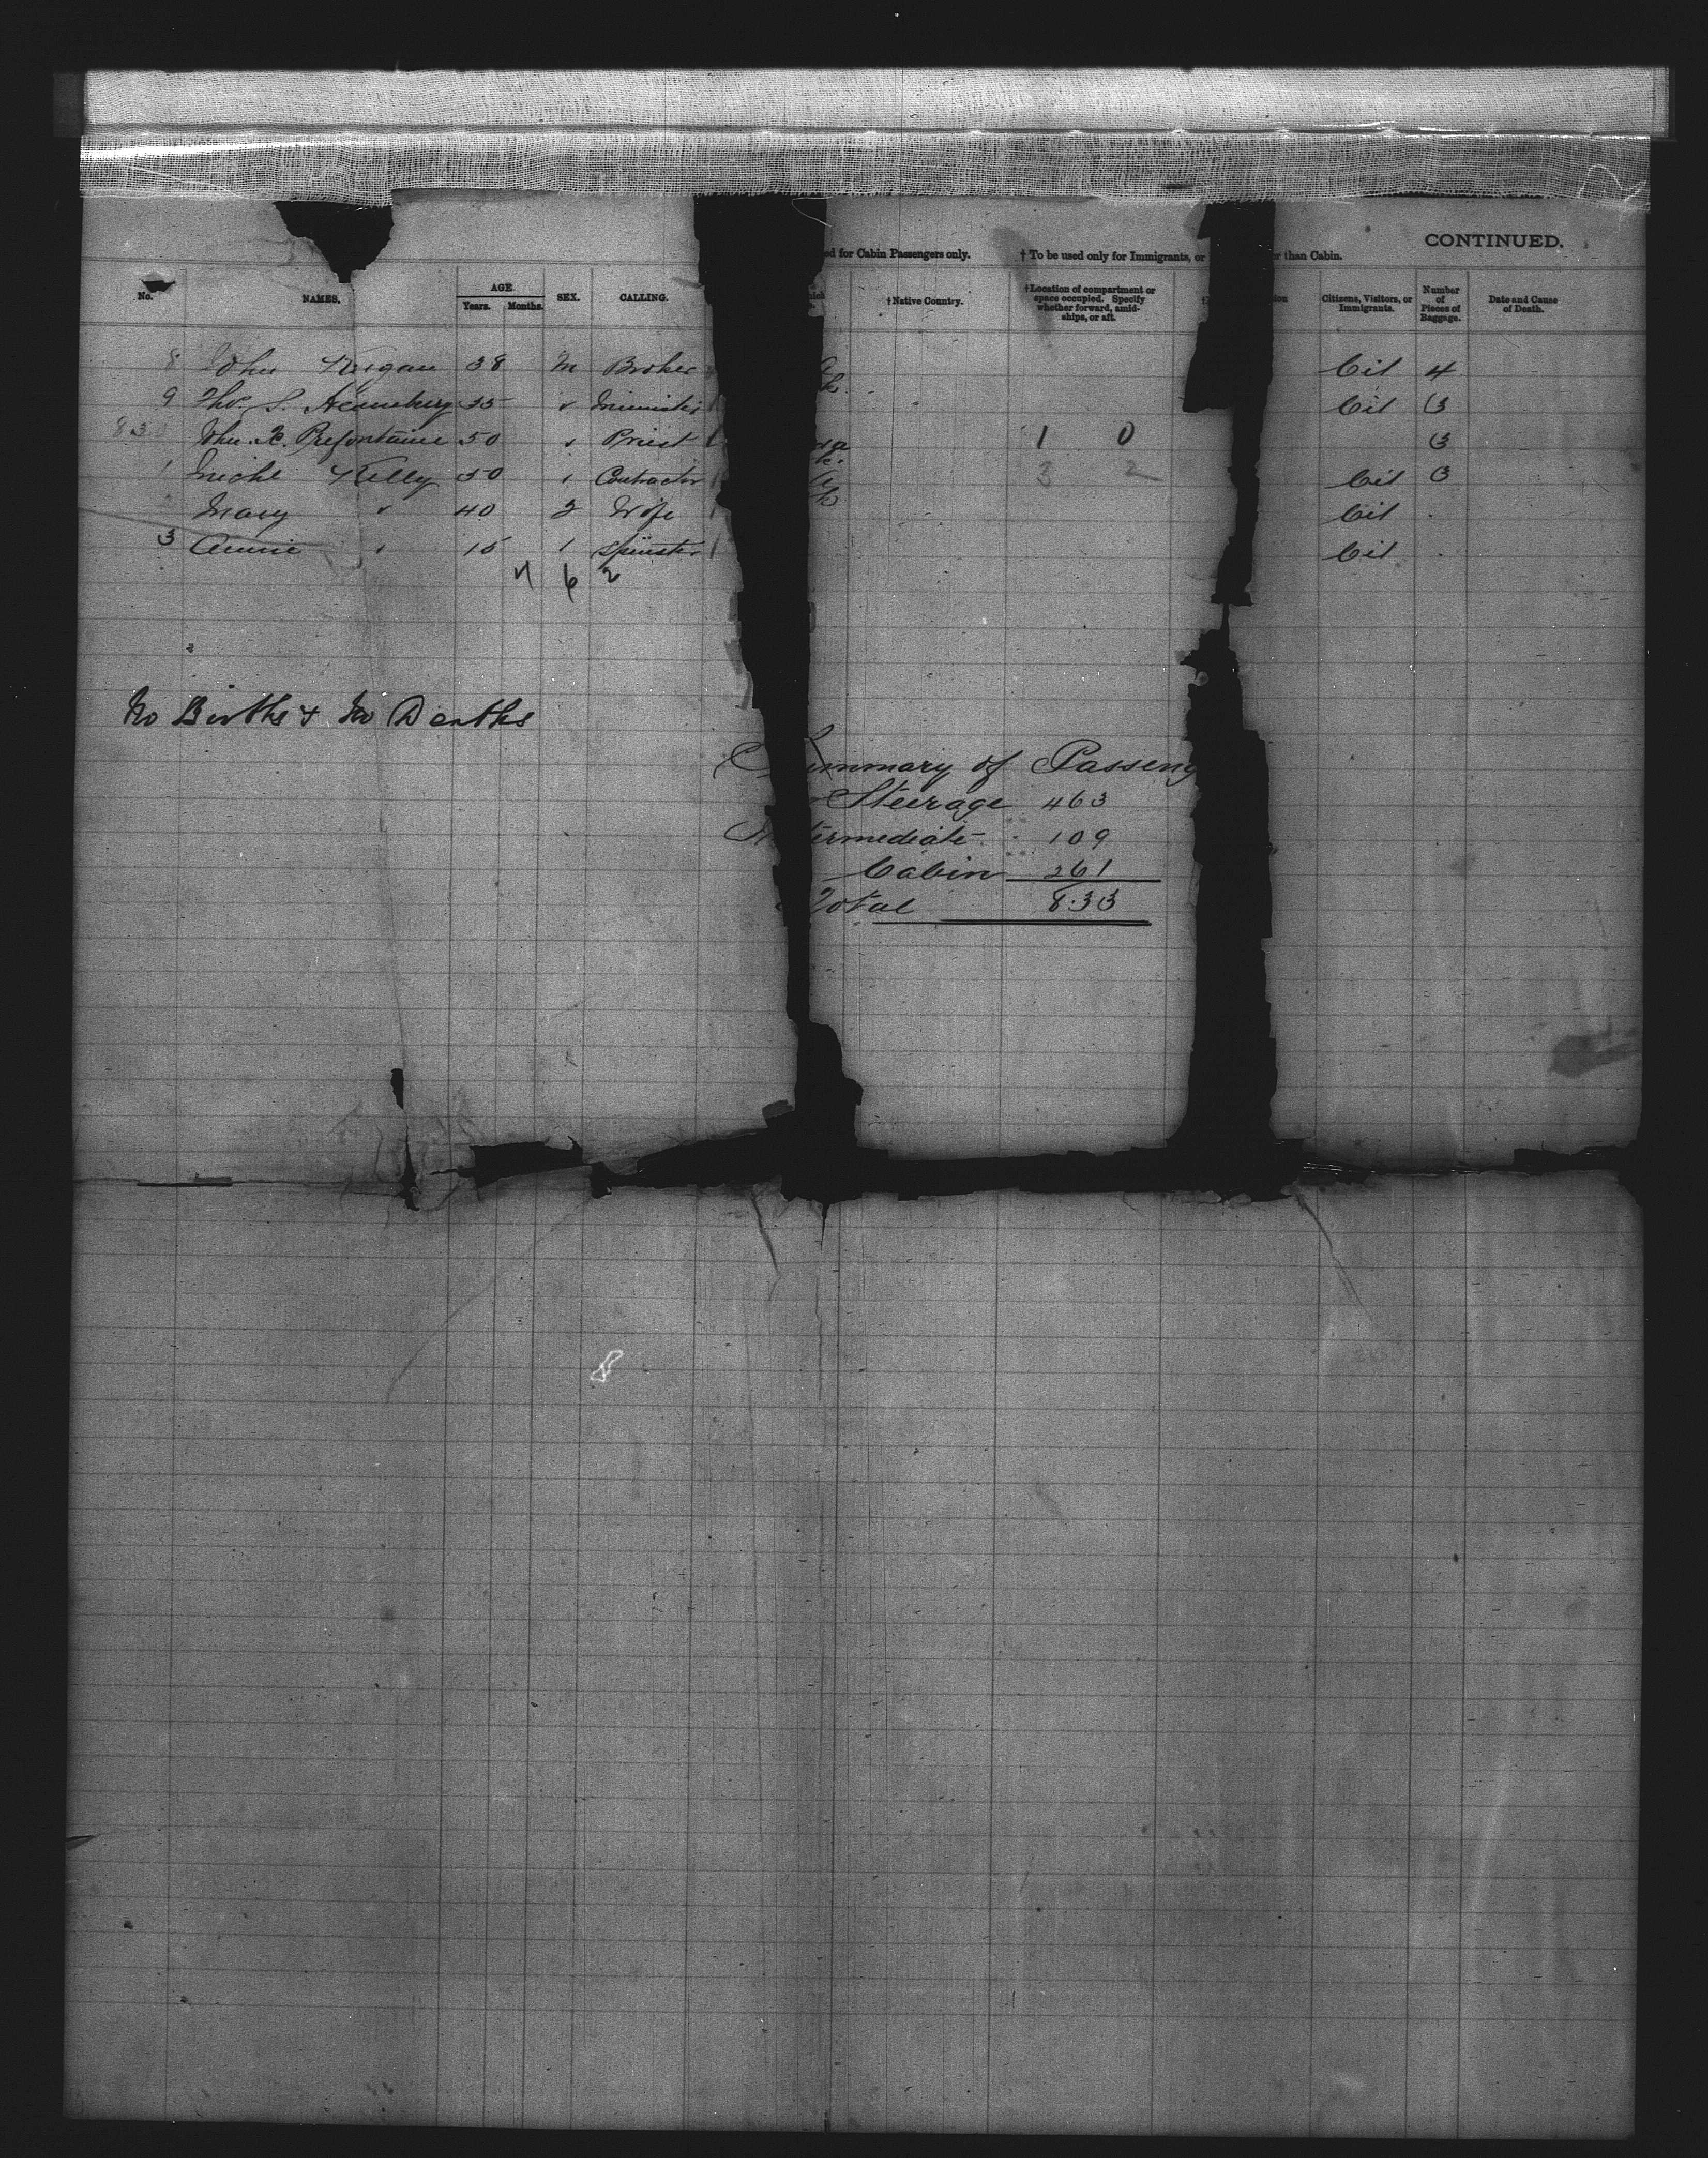 CONTINUED.
ed for Cabin Passengers only. † To be used only for Immigrants, or r than Cabin.
No. NAMES. AGE. Years. Months. SEX. CALLING. †Native Country. †Location of compartment or space occupied. Specify whether forward, amid-ships, or aft. Citizens, Visitors, or Immigrants. Number of Pieces of Baggage. Date and Cause of Death.
8 John 38 M Broker Cit 4
9 Thos. S. 35 " Minister Cit 3
830 John Prefontaine 50 " Priest 1 0 3
1 Michl Kelly 50 " Contractor 3 2 Cit 3
Mary " 40 Wife Cit
3 Annie " 15 Spinster Cit
4 6 2
No Births & No Deaths
Summary of Passeng
Steerage 463
Intermediate 109
Cabin 261
Total 833
8